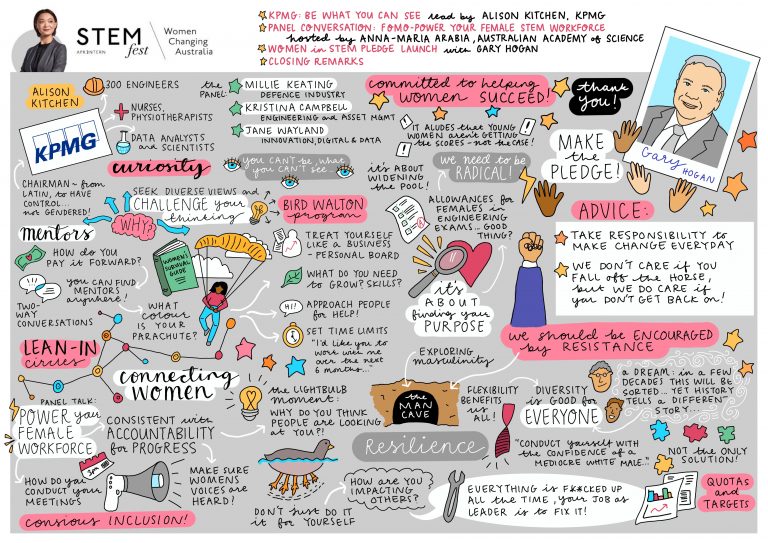 STEM
fest
APR.INTERN
Women
Changing
Australia
KPMG: BE WHAT YOU CAN SEE read by ALISON KITCHEN, KPMG
PANEL CONVERSATION: FOMO-POWER YOUR FEMALE STEM WORKFORCE
hosted by ANNA-MARIA ARABIA, AUSTRALIAN ACADEMY of SCIENCE
WOMEN in STEM PLEDGE LAUNCH with GARY HOGAN
CLOSING REMARKS
ALISON
KITCHEN
KPMG
300 ENGINEERS
NURSES,
PHYSIOTHERAPISTS
DATA ANALYSTS
and SCIENTISTS
the
PANEL:
MILLIE KEATING
DEFENCE INDUSTRY
KRISTINA CAMPBELL
ENGINEERING and ASSET MGMT
JANE WAYLAND
INNOVATION, DIGITAL & DATA
curiosity
YOU CAN'T BE what
YOU CAN'T SEE...
CHAIRMAN - from
LATIN, to HAVE
CONTROL...
not GENDERED!
WHY?
SEEK DIVERSE VIEWS and
CHALLENGE your
thinking
BIRD WALTON
program
mentors
HOW do YOU
PAY it FORWARD?
YOU can FIND
MENTORS
anywhere!
TWO-
WAY
CONVERSATIONS
WOMEN'S
SURVIVAL
GUIDE
WHAT
COLOUR
IS YOUR
PARACHUTE?
TREAT YOURSELF
LIKE A BUSINESS
- PERSONAL BOARD
WHAT DO YOU NEED
to GROW? SKILLS?
HI!
APPROACH PEOPLE
for HELP!
SET TIME LIMITS
"I'd like you to
work with me
over the next
6 months..."
LEAN-IN
circles
connecting
WOMEN
the LIGHTBULB
moment:
WHY DO YOU THINK
PEOPLE are LOOKING
at YOU?!
PANEL TALK:
POWER your
FEMALE
WORKFORCE
CONSISTENT with
ACCOUNTABILITY
for PROGRESS
HOW do YOU
CONDUCT your
MEETINGS
MAKE SURE
WOMENS
VOICES are
HEARD!
conscious INCLUSION!
DON'T JUST DO
IT for YOURSELF
HOW are YOU
IMPACTING
OTHERS?
committed to helping
WOMEN SUCCEED!
thank
you!
"IT ALUDES that YOUNG
WOMEN aren't GETTING
the SCORES - not the CASE!
it's ABOUT
WIDENING
the POOL!
we need to be
RADICAL!
ALLOWANCES for
FEMALES in
ENGINEERING
EXAMS... GOOD
THING?
MAKE
the
PLEDGE!
Gary
HOGAN
ADVICE:
TAKE RESPONSIBILITY to
MAKE CHANGE EVERYDAY
WE DON'T CARE if YOU
FALL off the HORSE,
but WE DO CARE if
you DON'T GET BACK on!
it's
ABOUT
finding your
PURPOSE
we should be ENCOURAGED
by RESISTANCE
EXPLORING
masculinity
the
MAN
CAVE
FLEXIBILITY
BENEFITS
us ALL!
Resilience
DIVERSITY
is GOOD for
EVERYONE
a DREAM: in a FEW
DECADES THIS WILL BE
SORTED... YET HISTORY
TELLS a DIFFERENT
STORY...
"CONDUCT yourself WITH
the CONFIDENCE of a
MEDIOCRE WHITE MALE..."
NOT the ONLY
SOLUTION!
QUOTAS
and
TARGETS
EVERYTHING is F*CKED UP
ALL the TIME, your JOB as
LEADER is to FIX IT!